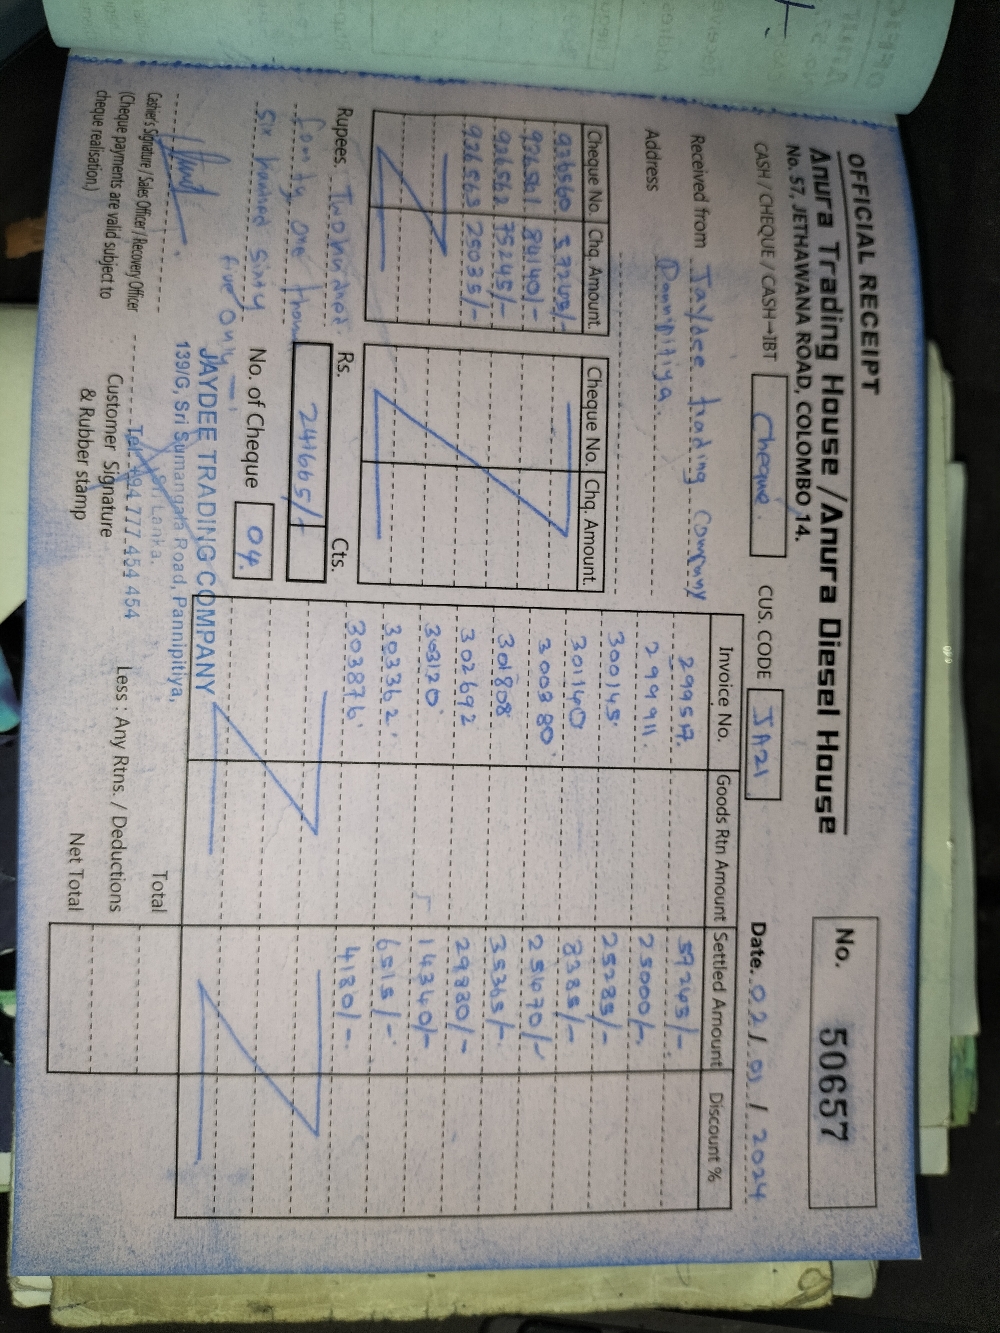 OFFICIAL RECEIPT
Anura Trading House / Anura Diesel House
No. 57, JETHAWANA ROAD, COLOMBO 14.
No. 50657
CASH / CHEQUE / CASH→IBT Cheque. CUS. CODE JA21 Date. 02/01/2024
Received from Jaydee trading company
Address Pannipitiya.
Cheque No. Chq. Amount. Cheque No. Chq. Amount.
926560 57245/-
926561 84140/-
926562 75245/-
926563 25035/-
Invoice No. Goods Rtn Amount Settled Amount Discount %
299517. 57245/-
299911. 25000/-
300145. 25285/-
301140 8385/-
300380. 25470/-
301808 35365/-
302692 29880/-
303120. 14340/-
303362. 6515/-
303876. 4180/-
Rupees. Two hundred Rs. 241665/- Cts.
fourty one thousand
six hundred sixty
five only
No. of Cheque 04.
JAYDEE TRADING COMPANY
139/G, Sri Sumangala Road, Pannipitiya,
Sri Lanka.
Tel: 094 777 454 454
Cashier's Signature / Sales Officer / Recovery Officer
(Cheque payments are valid subject to
cheque realisation.)
Customer Signature
& Rubber stamp
Total
Less : Any Rtns. / Deductions
Net Total